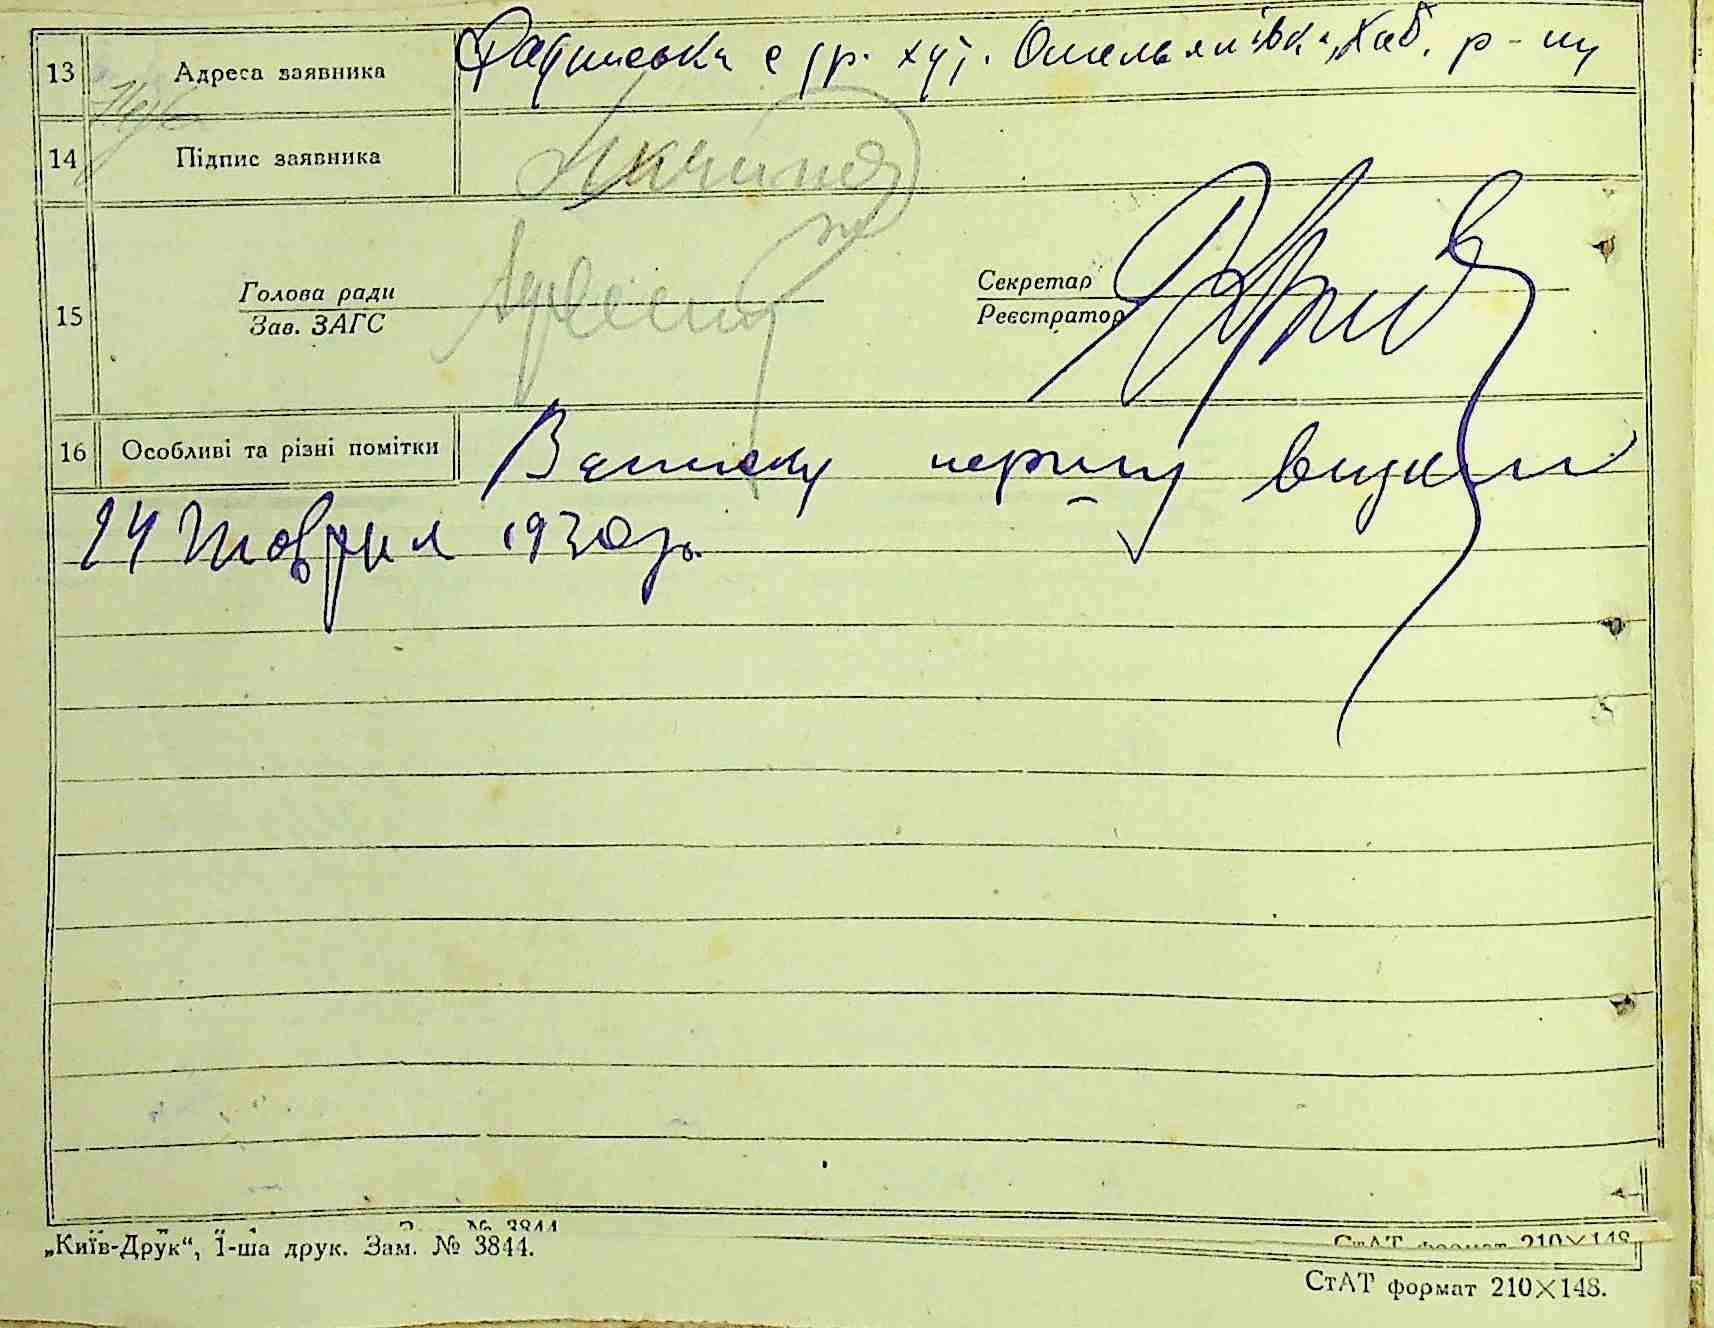 13 Адреса заявника с/р. хут. Омельянівка, Хаб. р-ну
14 Підпис заявника
15 Голова ради
Зав. ЗАГС
Секретар
Реєстратор
16 Особливі та різні помітки Виписку першу видали
24 Жовтня 1930 р.
„Київ-Друк“, 1-ша друк. Зам. № 3844.
СтАТ формат 210×148.